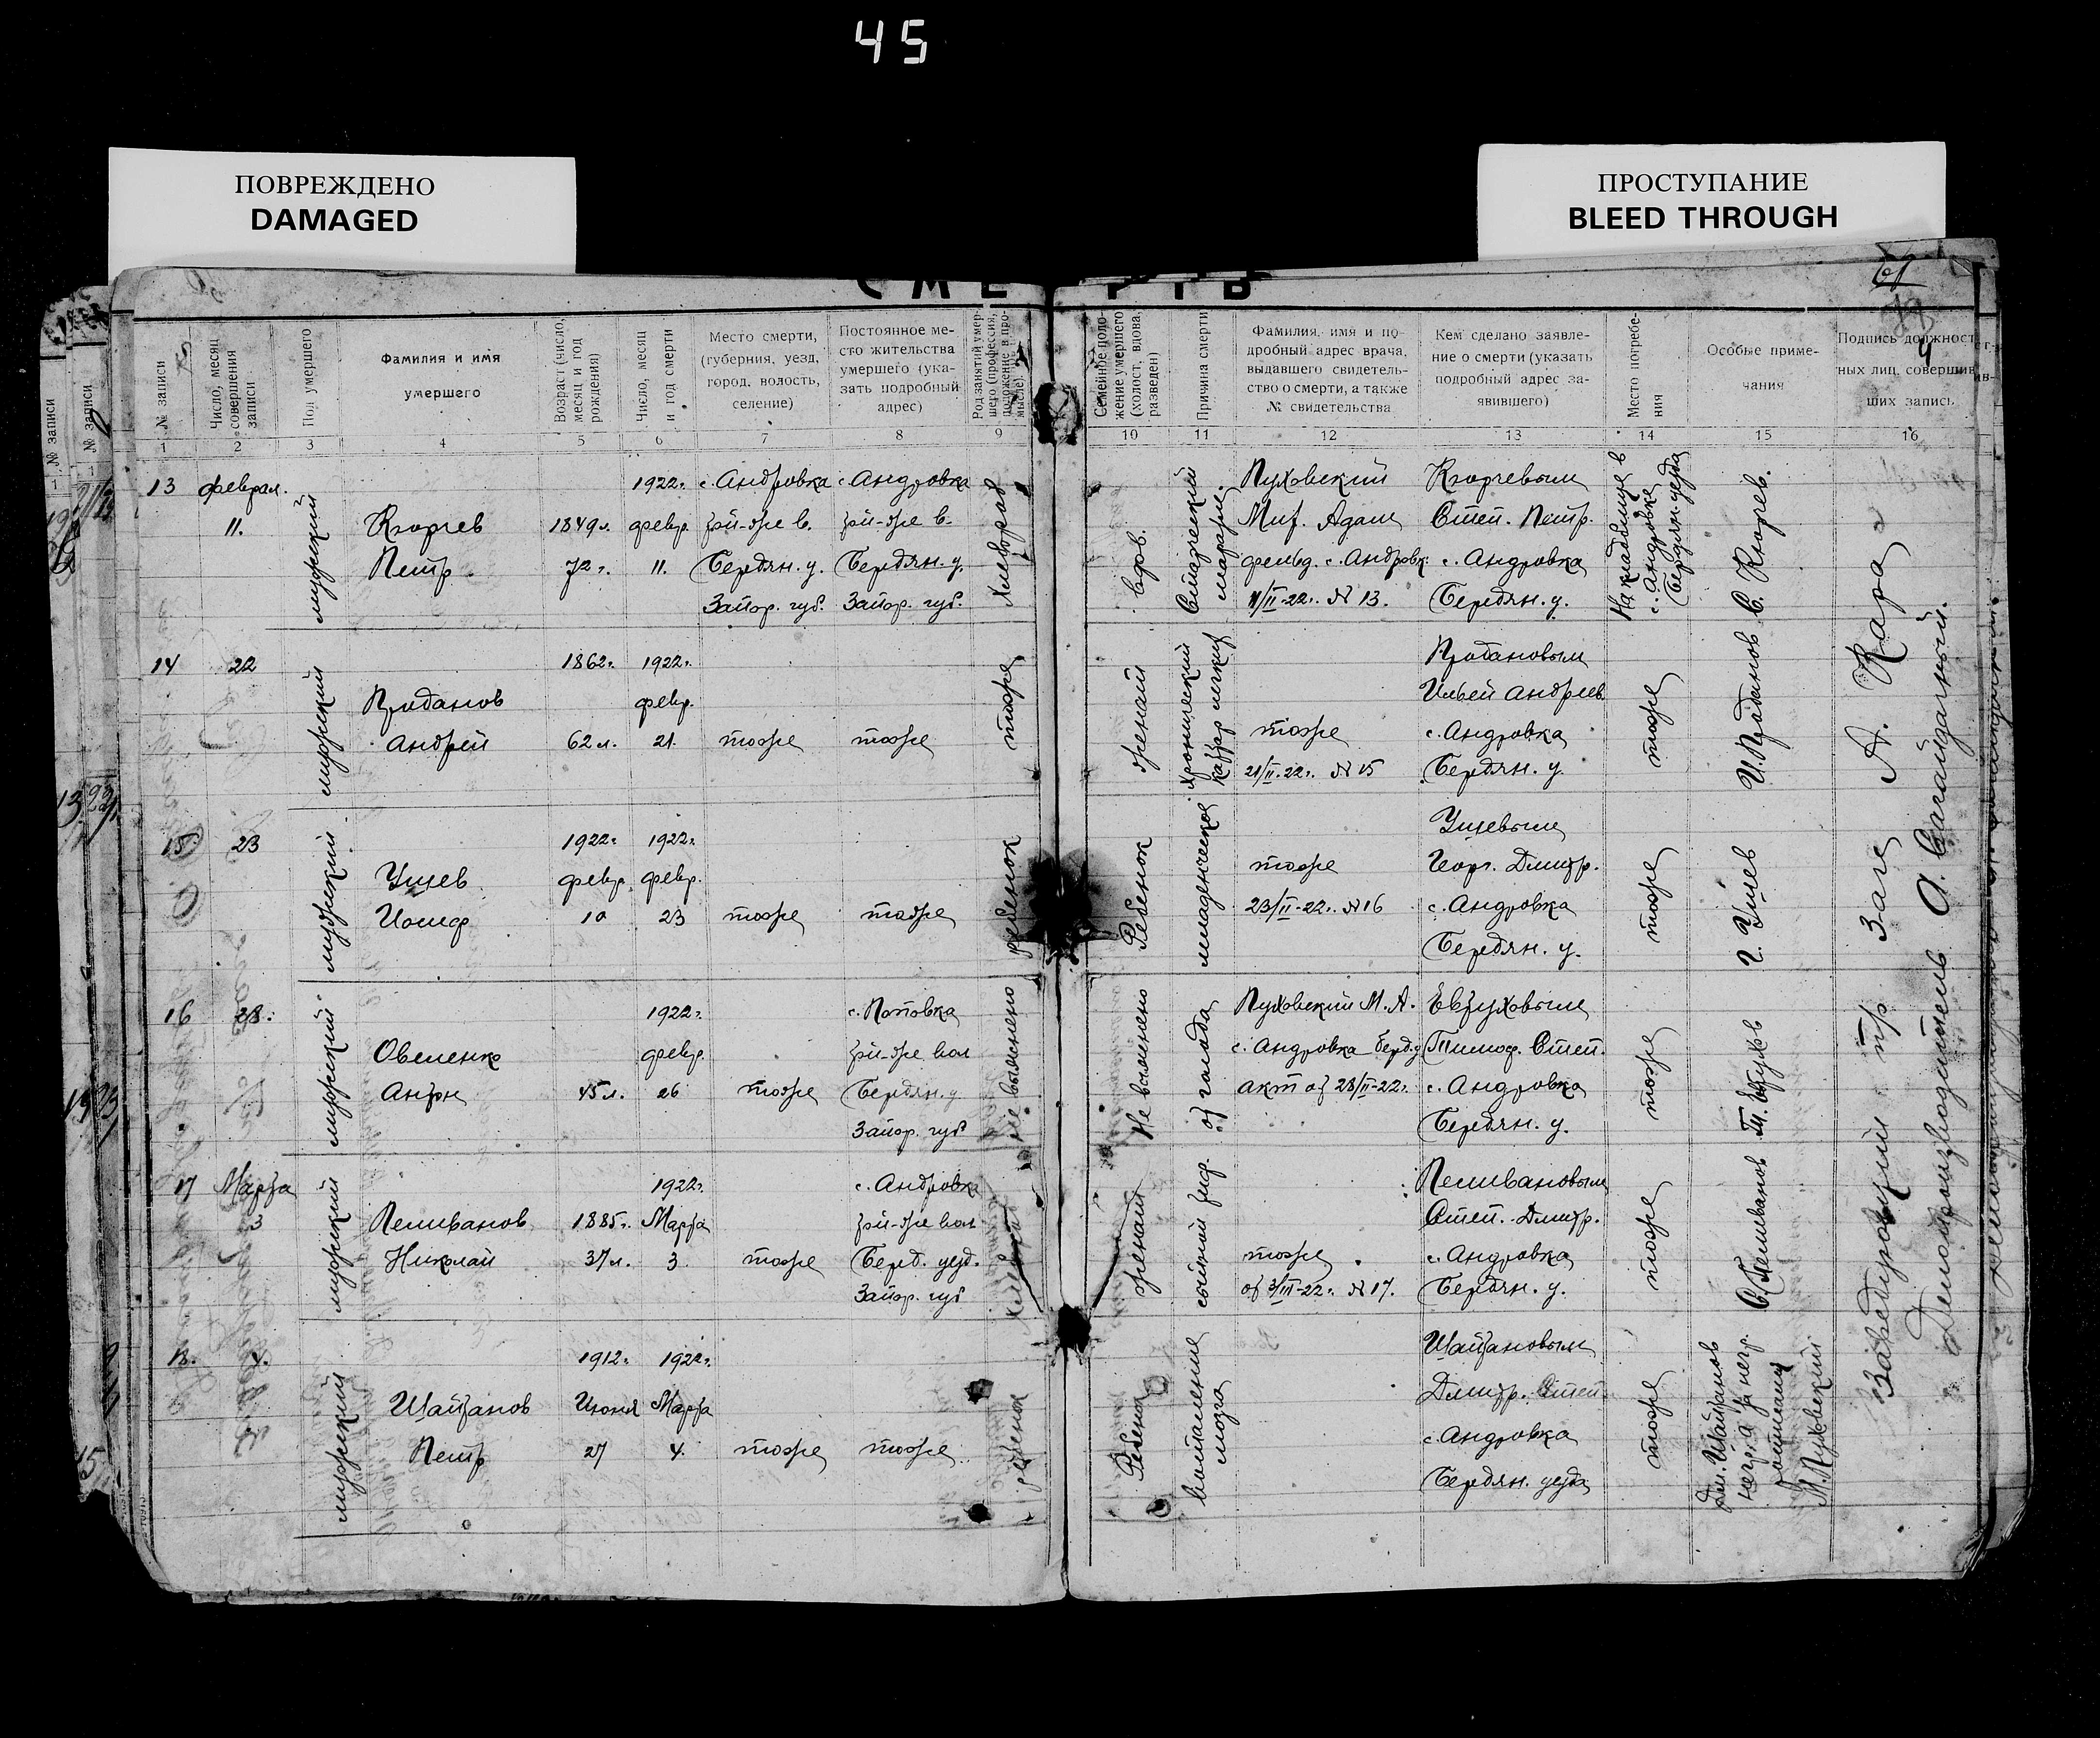 45
ПОВРЕЖДЕНО
DAMAGED
ПРОСТУПАНИЕ
BLEED THROUGH
№ записи
Число, месяц совершения записи
Пол умершего
Фамилия и имя
умершего
Возраст (число, месяц и год рождения)
Число, месяц и год смерти
Место смерти,
(губерния, уезд,
город, волость,
селение)
Постоянное ме-
сто жительства
умершего (ука-
зать подробный
адрес)
Семейное поло-
жение умершего
(холост, вдова,
разведен)
Причина смерти
Фамилия, имя и по-
дробный адрес врача,
выдавшего свидетель-
ство о смерти, а также
№ свидетельства
Кем сделано заявле-
ние о смерти (указать
подробный адрес за-
явившего)
Место погребе-
ния
Особые приме-
чания
Подпись должност-
ных лиц, совершив-
ших запись
1 2 3 4 5 6 7 8 9 10 11 12 13 14 15 16
13 феврал.
11.
мужеский
Кюрчев
Петр
1849г.
72 г.
1922г.
февр.
11.
с. Андровка
той-же в.
Бердян. у.
Запор. губ.
с. Андровка
той-же в.
Бердян. у.
Запор. губ.
Хлебороб
вдов.
Старческий
маразм.
Пуховский
Миф. Адам
фельд. с. Андровк.
11/II-22г. N 13.
Кюрчевым
Степ. Петр.
с. Андровка
Бердян. у.
На кладбище в
с. Андровке
Бердян. уезда
С. Кюрчев.
14 22
мужеский
Проданов
Андрей
1862г.
62 л.
1922г.
февр.
21.
тоже
тоже
тоже
женат
Хронический
катар легких
тоже
21/II-22г. N 15
Продановым
Ильей Андреев.
с. Андровка
Бердян. у.
тоже
И. Проданов
15 23
мужеский
Ушев
Иосиф
1922г.
февр.
10
1922г.
февр.
23
тоже
тоже
ребенок
Ребенок
младенческое
тоже
23/II-22г. N 16
Ушевым
Георг. Дмитр.
с. Андровка
Бердян. у.
тоже
Г. Ушев
16 28.
мужеский
Овсиенко
Антон
45 л.
1922г.
февр.
26
тоже
с. Поповка
той-же вол
Бердян. у
Запор. губ
не выяснено
Не выяснено
от голода
Пуховский М. А.
с. Андровка Берд. у
акт от 28/II-22г.
Евтуховым
Тимоф. Степ.
с. Андровка
Бердян. у.
тоже
Т. Евтухов
17 Марта
3
мужеский
Пеливанов
Николай
1885г.
37 л.
1922г.
Марта
3.
тоже
с. Андровка
той-же вол.
Берд. уезд.
Запор. губ
Хлебороб
женат
сыпной тиф.
тоже
от 3/III-22г. N 17.
Пеливановым
Степ. Дмитр.
с. Андровка
Бердян. у.
тоже
С. Пеливанов
18. 4.
мужеский
Шайтанов
Петр
1912г.
Июня
27
1922г.
Марта
4.
тоже
тоже
ребенок
Ребенок
воспаление
мозга
Шайтановым
Дмитр. Степ.
с. Андровка
Бердян. уезда
тоже
Дм. Шайтанов
негр. а за негр.
расписался
М. Пуховский
Заведующий Загс А. Кара
Делопроизводитель А. Сагайдачный.